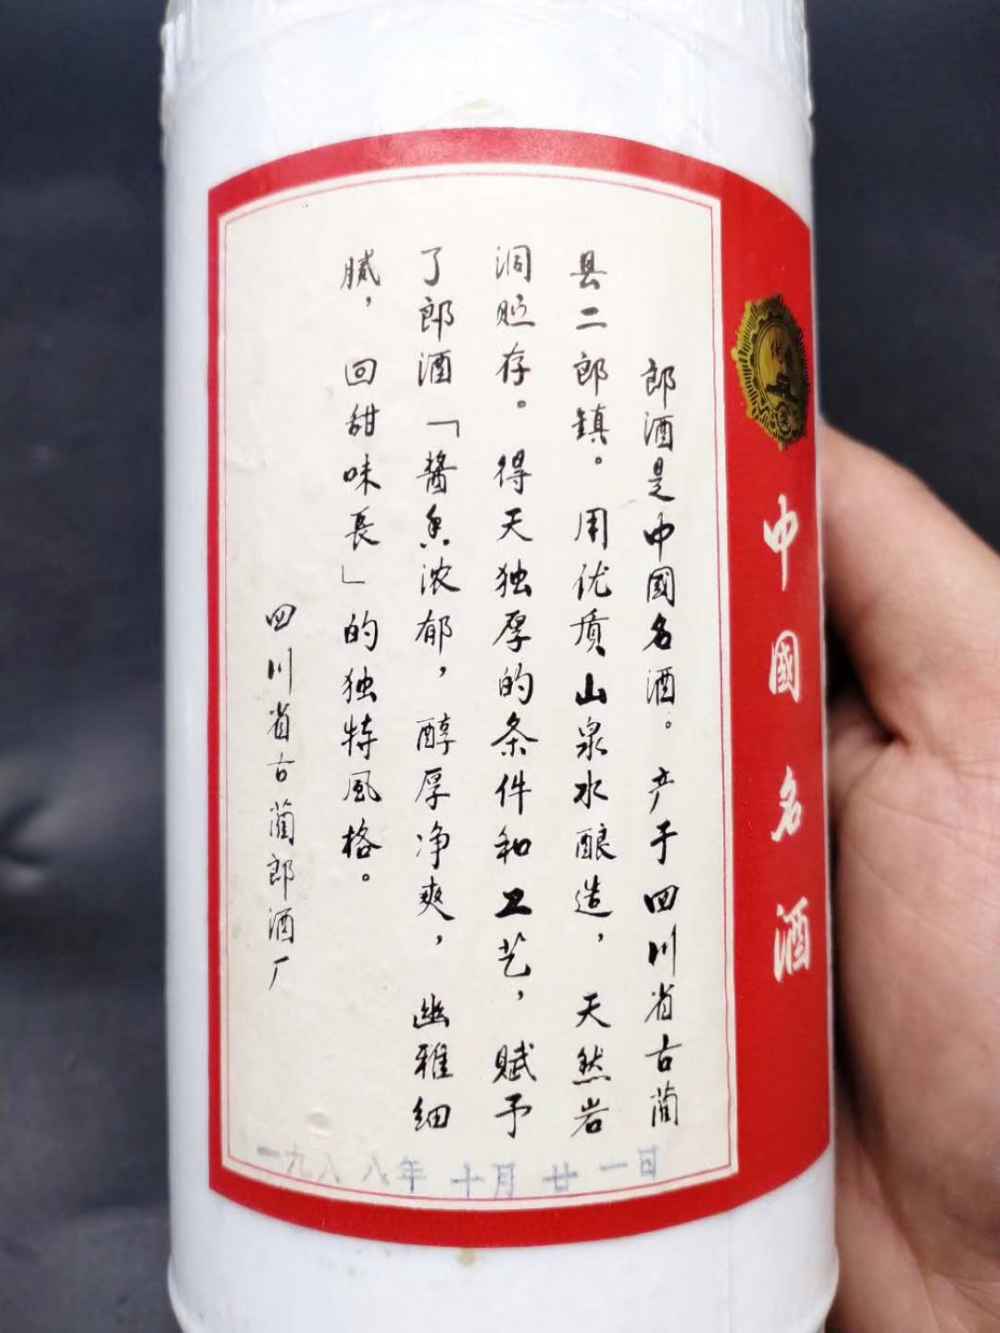 中國名酒
郎酒是中國名酒。产于四川省古蔺
县二郎镇。用优质山泉水酿造，天然岩
洞贮存。得天独厚的条件和工艺，赋予
了郎酒「醬香浓郁，醇厚净爽，幽雅细
腻，回甜味長」的独特風格。
四川省古蔺郎酒厂
一九八八年十月廿一日